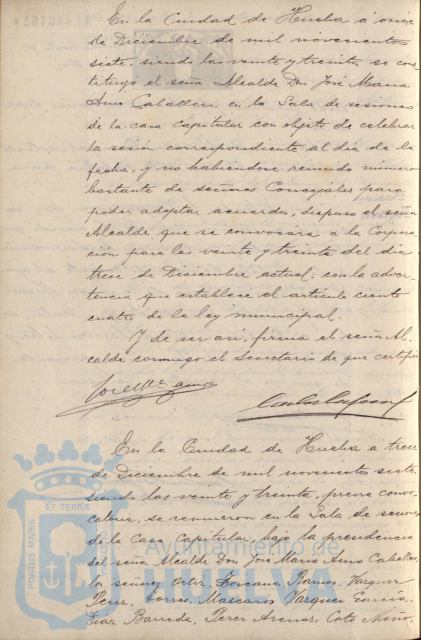 En la Ciudad de Huelva á once
de Diciembre de mil novecientos
siete, siendo las veinte y treinta se cons
tituyó el señor Alcalde Don José María
Amo Caballero, en la Sala de sesiones
de la casa capitular con objeto de celebrar
la sesión correspondiente al dia de la
fecha, y no habiéndose reunido número
bastante de señores Concejales para
poder adoptar acuerdos, dispuso el señor
Alcalde que se convocara a la Corpora
ción para las veinte y treinta del dia
trece de Diciembre actual, con la adver
tencia que establece el artículo ciento
cuatro de la ley municipal.
Y de ser así, firma el señor Al
calde conmigo el Secretario de que certifico
José Mª Amo
En la Ciudad de Huelva a trece
de Diciembre de mil novecientos siete
siendo las veinte y treinta, previa convo
catoria, se reunieron en la Sala de sesiones
de la Casa Capitular, bajo la presidencia
del señor Alcalde Don José María Amo Caballero,
los señores Ortiz, Toscana, Ramos, Vazquez
Perez, Torres, Mascarós, Vazquez García,
Diaz Barreda, Perez Arenas, Coto, Niño,
PORTUS MARIS
ET TERRÆ
Ayuntamiento de
HUELVA